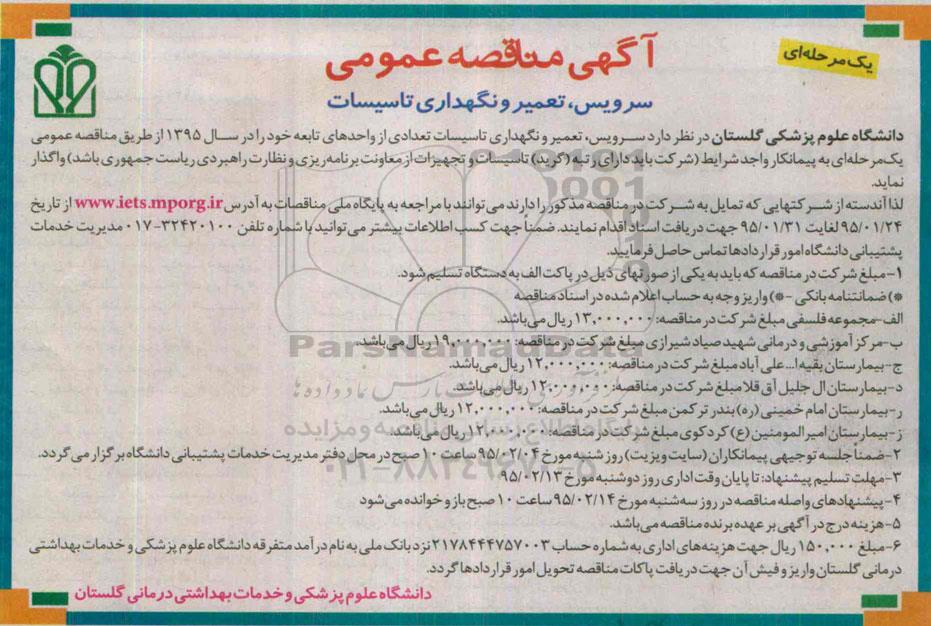 یک‌مرحله‌ای
آگهی مناقصه عمومی
سرویس، تعمیر و نگهداری تاسیسات
دانشگاه علوم پزشکی گلستان در نظر دارد سرویس، تعمیر و نگهداری تاسیسات تعدادی از واحدهای تابعه خود را در سال ۱۳۹۵ از طریق مناقصه عمومی
یک‌مرحله‌ای به پیمانکار واجد شرایط (شرکت باید دارای رتبه (گرید) تاسیسات و تجهیزات از معاونت برنامه‌ریزی و نظارت راهبردی ریاست جمهوری باشد) واگذار
نماید.
لذا آندسته از شرکتهایی که تمایل به شرکت در مناقصه مذکور را دارند می‌توانند با مراجعه به پایگاه ملی مناقصات به آدرس www.iets.mporg.ir از تاریخ
۹۵/۰۱/۲۴ لغایت ۹۵/۰۱/۳۱ جهت دریافت اسناد اقدام نمایند. ضمناً جهت کسب اطلاعات بیشتر می‌توانید با شماره تلفن ۳۲۴۲۰۱۰۰-۰۱۷ مدیریت خدمات
پشتیبانی دانشگاه امور قراردادها تماس حاصل فرمایید.
۱-مبلغ شرکت در مناقصه که باید به یکی از صورتهای ذیل در پاکت الف به دستگاه تسلیم شود.
*) ضمانتنامه بانکی -*) واریز وجه به حساب اعلام شده در اسناد مناقصه
الف-مجموعه فلسفی مبلغ شرکت در مناقصه: ۱۳,۰۰۰,۰۰۰ ریال می‌باشد.
ب-مرکز آموزشی و درمانی شهید صیاد شیرازی مبلغ شرکت در مناقصه: ۱۹,۰۰۰,۰۰۰ ریال می‌باشد.
ج-بیمارستان بقیه ا... علی آباد مبلغ شرکت در مناقصه: ۱۲,۰۰۰,۰۰۰ ریال می‌باشد.
د-بیمارستان ال جلیل آق قلا مبلغ شرکت در مناقصه: ۱۲,۰۰۰,۰۰۰ ریال می‌باشد.
ر-بیمارستان امام خمینی (ره) بندر ترکمن مبلغ شرکت در مناقصه: ۱۲,۰۰۰,۰۰۰ ریال می‌باشد.
ز-بیمارستان امیرالمومنین (ع) کردکوی مبلغ شرکت در مناقصه: ۱۲,۰۰۰,۰۰۰ ریال می‌باشد.
۲-ضمنا جلسه توجیهی پیمانکاران (سایت ویزیت) روز شنبه مورخ ۹۵/۰۲/۰۴ ساعت ۱۰ صبح در محل دفتر مدیریت خدمات پشتیبانی دانشگاه برگزار می‌گردد.
۳-مهلت تسلیم پیشنهاد: تا پایان وقت اداری روز دوشنبه مورخ ۹۵/۰۲/۱۳
۴-پیشنهادهای واصله مناقصه در روز سه‌شنبه مورخ ۹۵/۰۲/۱۴ ساعت ۱۰ صبح باز و خوانده می‌شود
۵-هزینه درج در آگهی بر عهده برنده مناقصه می‌باشد.
۶-مبلغ ۱۵۰,۰۰۰ ریال جهت هزینه‌های اداری به شماره حساب ۲۱۷۸۴۴۴۷۵۷۰۰۳ نزد بانک ملی به نام درآمد متفرقه دانشگاه علوم پزشکی و خدمات بهداشتی
درمانی گلستان واریز و فیش آن جهت دریافت پاکات مناقصه تحویل امور قراردادها گردد.
دانشگاه علوم پزشکی و خدمات بهداشتی درمانی گلستان
ParsNamadData
۰۲۱-۸۸۳۴۹۶۷۰-۵